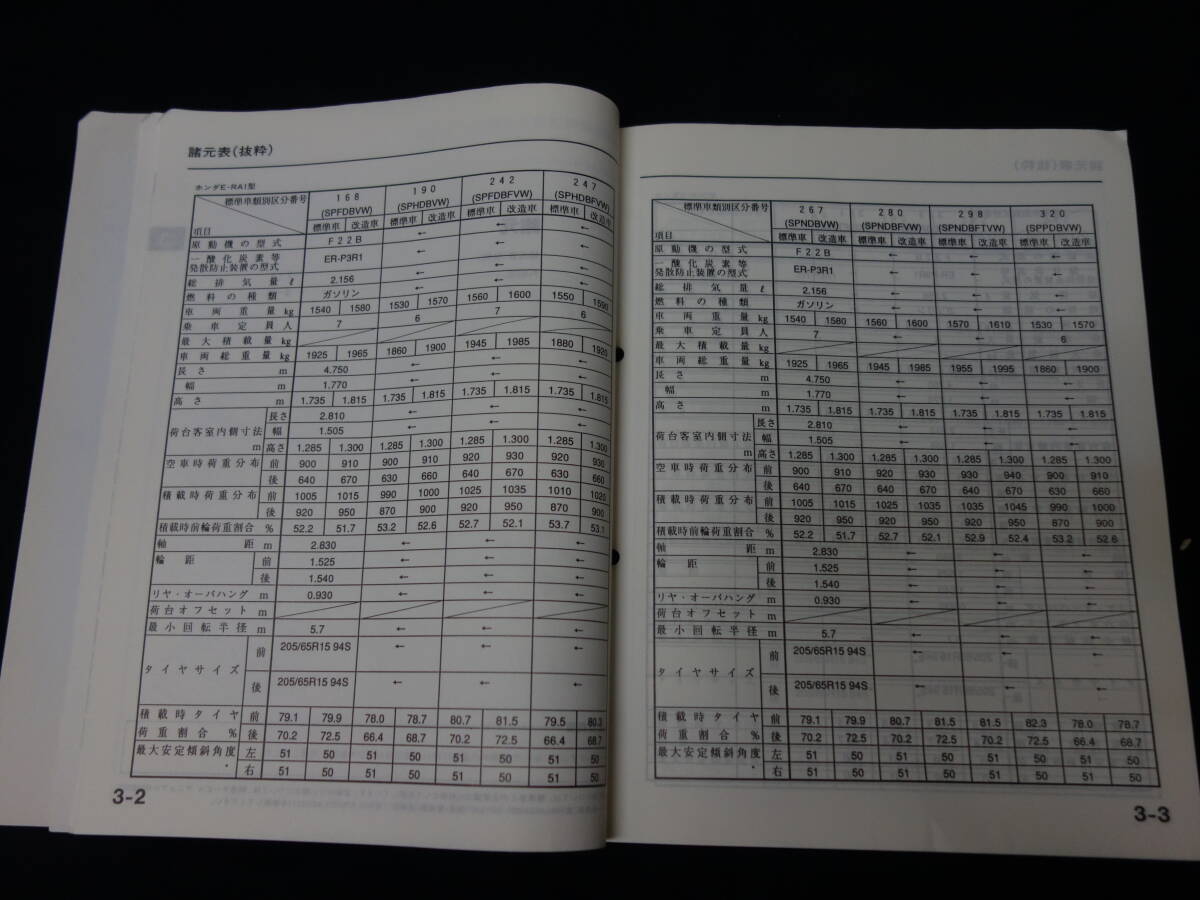 諸元表(抜粋)
ホンダE-RA1型
標準車類別区分番号 168 190 242 247
(SPFDBVW) (SPHDBVW) (SPFDBFVW) (SPHDBFVW)
項目 標準車 改造車 標準車 改造車 標準車 改造車 標準車 改造車
原動機の型式 F22B ← ← ←
一酸化炭素等
発散防止装置の型式 ER-P3R1 ← ← ←
総排気量 ℓ 2.156 ← ← ←
燃料の種類 ガソリン ← ← ←
車両重量 kg 1540 1580 1530 1570 1560 1600 1550 1590
乗車定員 人 7 6 7 6
最大積載量 kg
車両総重量 kg 1925 1965 1860 1900 1945 1985 1880 1920
長さ m 4.750 ← ← ←
幅 m 1.770 ← ← ←
高さ m 1.735 1.815 1.735 1.815 1.735 1.815 1.735 1.815
荷台客室内側寸法 m 長さ 2.810 ← ← ←
幅 1.505 ← ← ←
高さ 1.285 1.300 1.285 1.300 1.285 1.300 1.285 1.300
空車時荷重分布 前 900 910 900 910 920 930 920 930
後 640 670 630 660 640 670 630 660
積載時荷重分布 前 1005 1015 990 1000 1025 1035 1010 1020
後 920 950 870 900 920 950 870 900
積載時前輪荷重割合 % 52.2 51.7 53.2 52.6 52.7 52.1 53.7 53.1
軸距 m 2.830 ← ← ←
輪距 前 1.525 ← ← ←
後 1.540 ← ← ←
リヤ・オーバハング m 0.930 ← ← ←
荷台オフセット m
最小回転半径 m 5.7 ← ← ←
タイヤサイズ 前 205/65R15 94S ← ← ←
後 205/65R15 94S ← ← ←
積載時タイヤ 前 79.1 79.9 78.0 78.7 80.7 81.5 79.5 80.3
荷重割合 % 後 70.2 72.5 66.4 68.7 70.2 72.5 66.4 68.7
最大安定傾斜角度 ° 左 51 50 51 50 51 50 51 50
右 51 50 51 50 51 50 51 50
3-2
標準車類別区分番号 267 280 298 320
(SPNDBVW) (SPNDBFVW) (SPNDBFTVW) (SPPDBVW)
項目 標準車 改造車 標準車 改造車 標準車 改造車 標準車 改造車
原動機の型式 F22B ← ← ←
一酸化炭素等
発散防止装置の型式 ER-P3R1 ← ← ←
総排気量 ℓ 2.156 ← ← ←
燃料の種類 ガソリン ← ← ←
車両重量 kg 1540 1580 1560 1600 1570 1610 1530 1570
乗車定員 人 7 ← ← 6
最大積載量 kg
車両総重量 kg 1925 1965 1945 1985 1955 1995 1860 1900
長さ m 4.750 ← ← ←
幅 m 1.770 ← ← ←
高さ m 1.735 1.815 1.735 1.815 1.735 1.815 1.735 1.815
荷台客室内側寸法 m 長さ 2.810 ← ← ←
幅 1.505 ← ← ←
高さ 1.285 1.300 1.285 1.300 1.285 1.300 1.285 1.300
空車時荷重分布 前 900 910 920 930 930 940 900 910
後 640 670 640 670 640 670 630 660
積載時荷重分布 前 1005 1015 1025 1035 1035 1045 990 1000
後 920 950 920 950 920 950 870 900
積載時前輪荷重割合 % 52.2 51.7 52.7 52.1 52.9 52.4 53.2 52.6
軸距 m 2.830 ← ← ←
輪距 前 1.525 ← ← ←
後 1.540 ← ← ←
リヤ・オーバハング m 0.930 ← ← ←
荷台オフセット m
最小回転半径 m 5.7 ← ← ←
タイヤサイズ 前 205/65R15 94S ← ← ←
後 205/65R15 94S ← ← ←
積載時タイヤ 前 79.1 79.9 80.7 81.5 81.5 82.3 78.0 78.7
荷重割合 % 後 70.2 72.5 70.2 72.5 70.2 72.5 66.4 68.7
最大安定傾斜角度 ° 左 51 50 51 50 51 50 51 50
右 51 50 51 50 51 50 51 50
3-3